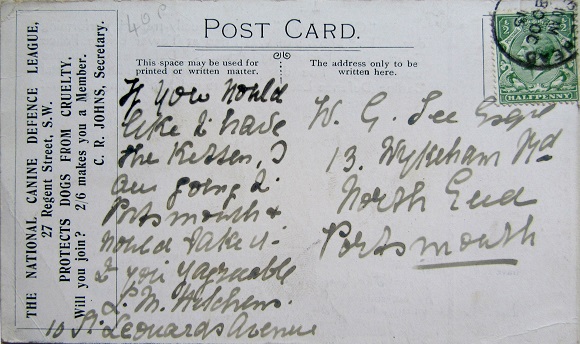 49P
POST CARD.
THE NATIONAL CANINE DEFENCE LEAGUE,
27 Regent Street, S.W.
PROTECTS DOGS FROM CRUELTY.
Will you join? 2/6 makes you a Member.
C. R. JOHNS, Secretary.
This space may be used for
printed or written matter.
The address only to be
written here.
If you would
like to have
the Kitten, I
am going to
Portsmouth &
would take it
to you if agreeable
10 St. Leonards Avenue
W. G. Lee Esqre
13. Wykeham Rd
North End
Portsmouth
HALFPENNY